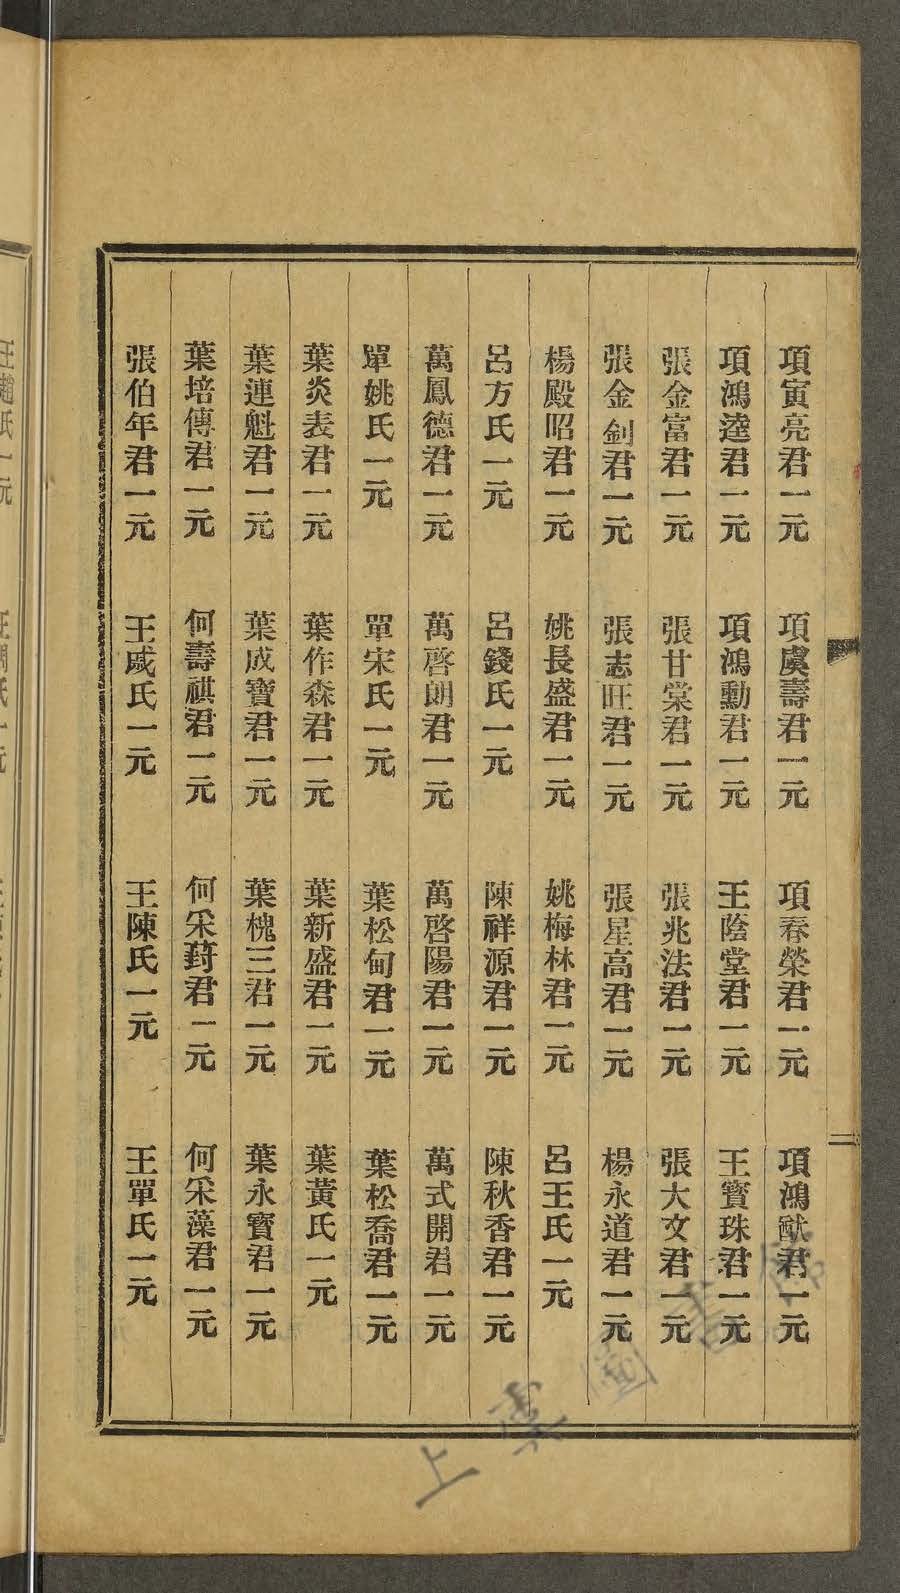 項寅亮君一元　項虞壽君一元　項春榮君一元　項鴻猷君一元
項鴻逵君一元　項鴻勳君一元　王蔭堂君一元　王寳珠君一元
張金富君一元　張甘棠君一元　張兆法君一元　張大文君一元
張金釗君一元　張志旺君一元　張星高君一元　楊永道君一元
楊殿昭君一元　姚長盛君一元　姚梅林君一元　呂王氏一元
呂方氏一元　呂錢氏一元　陳祥源君一元　陳秋香君一元
萬鳳德君一元　萬啓朗君一元　萬啓陽君一元　萬式開君一元
單姚氏一元　單宋氏一元　葉松甸君一元　葉松喬君一元
葉炎表君一元　葉作森君一元　葉新盛君一元　葉黃氏一元
葉連魁君一元　葉成寶君一元　葉槐三君一元　葉永寳君一元
葉培傳君一元　何壽祺君一元　何采葑君一元　何采藻君一元
張伯年君一元　王戚氏一元　王陳氏一元　王單氏一元
二
上虞圖書館